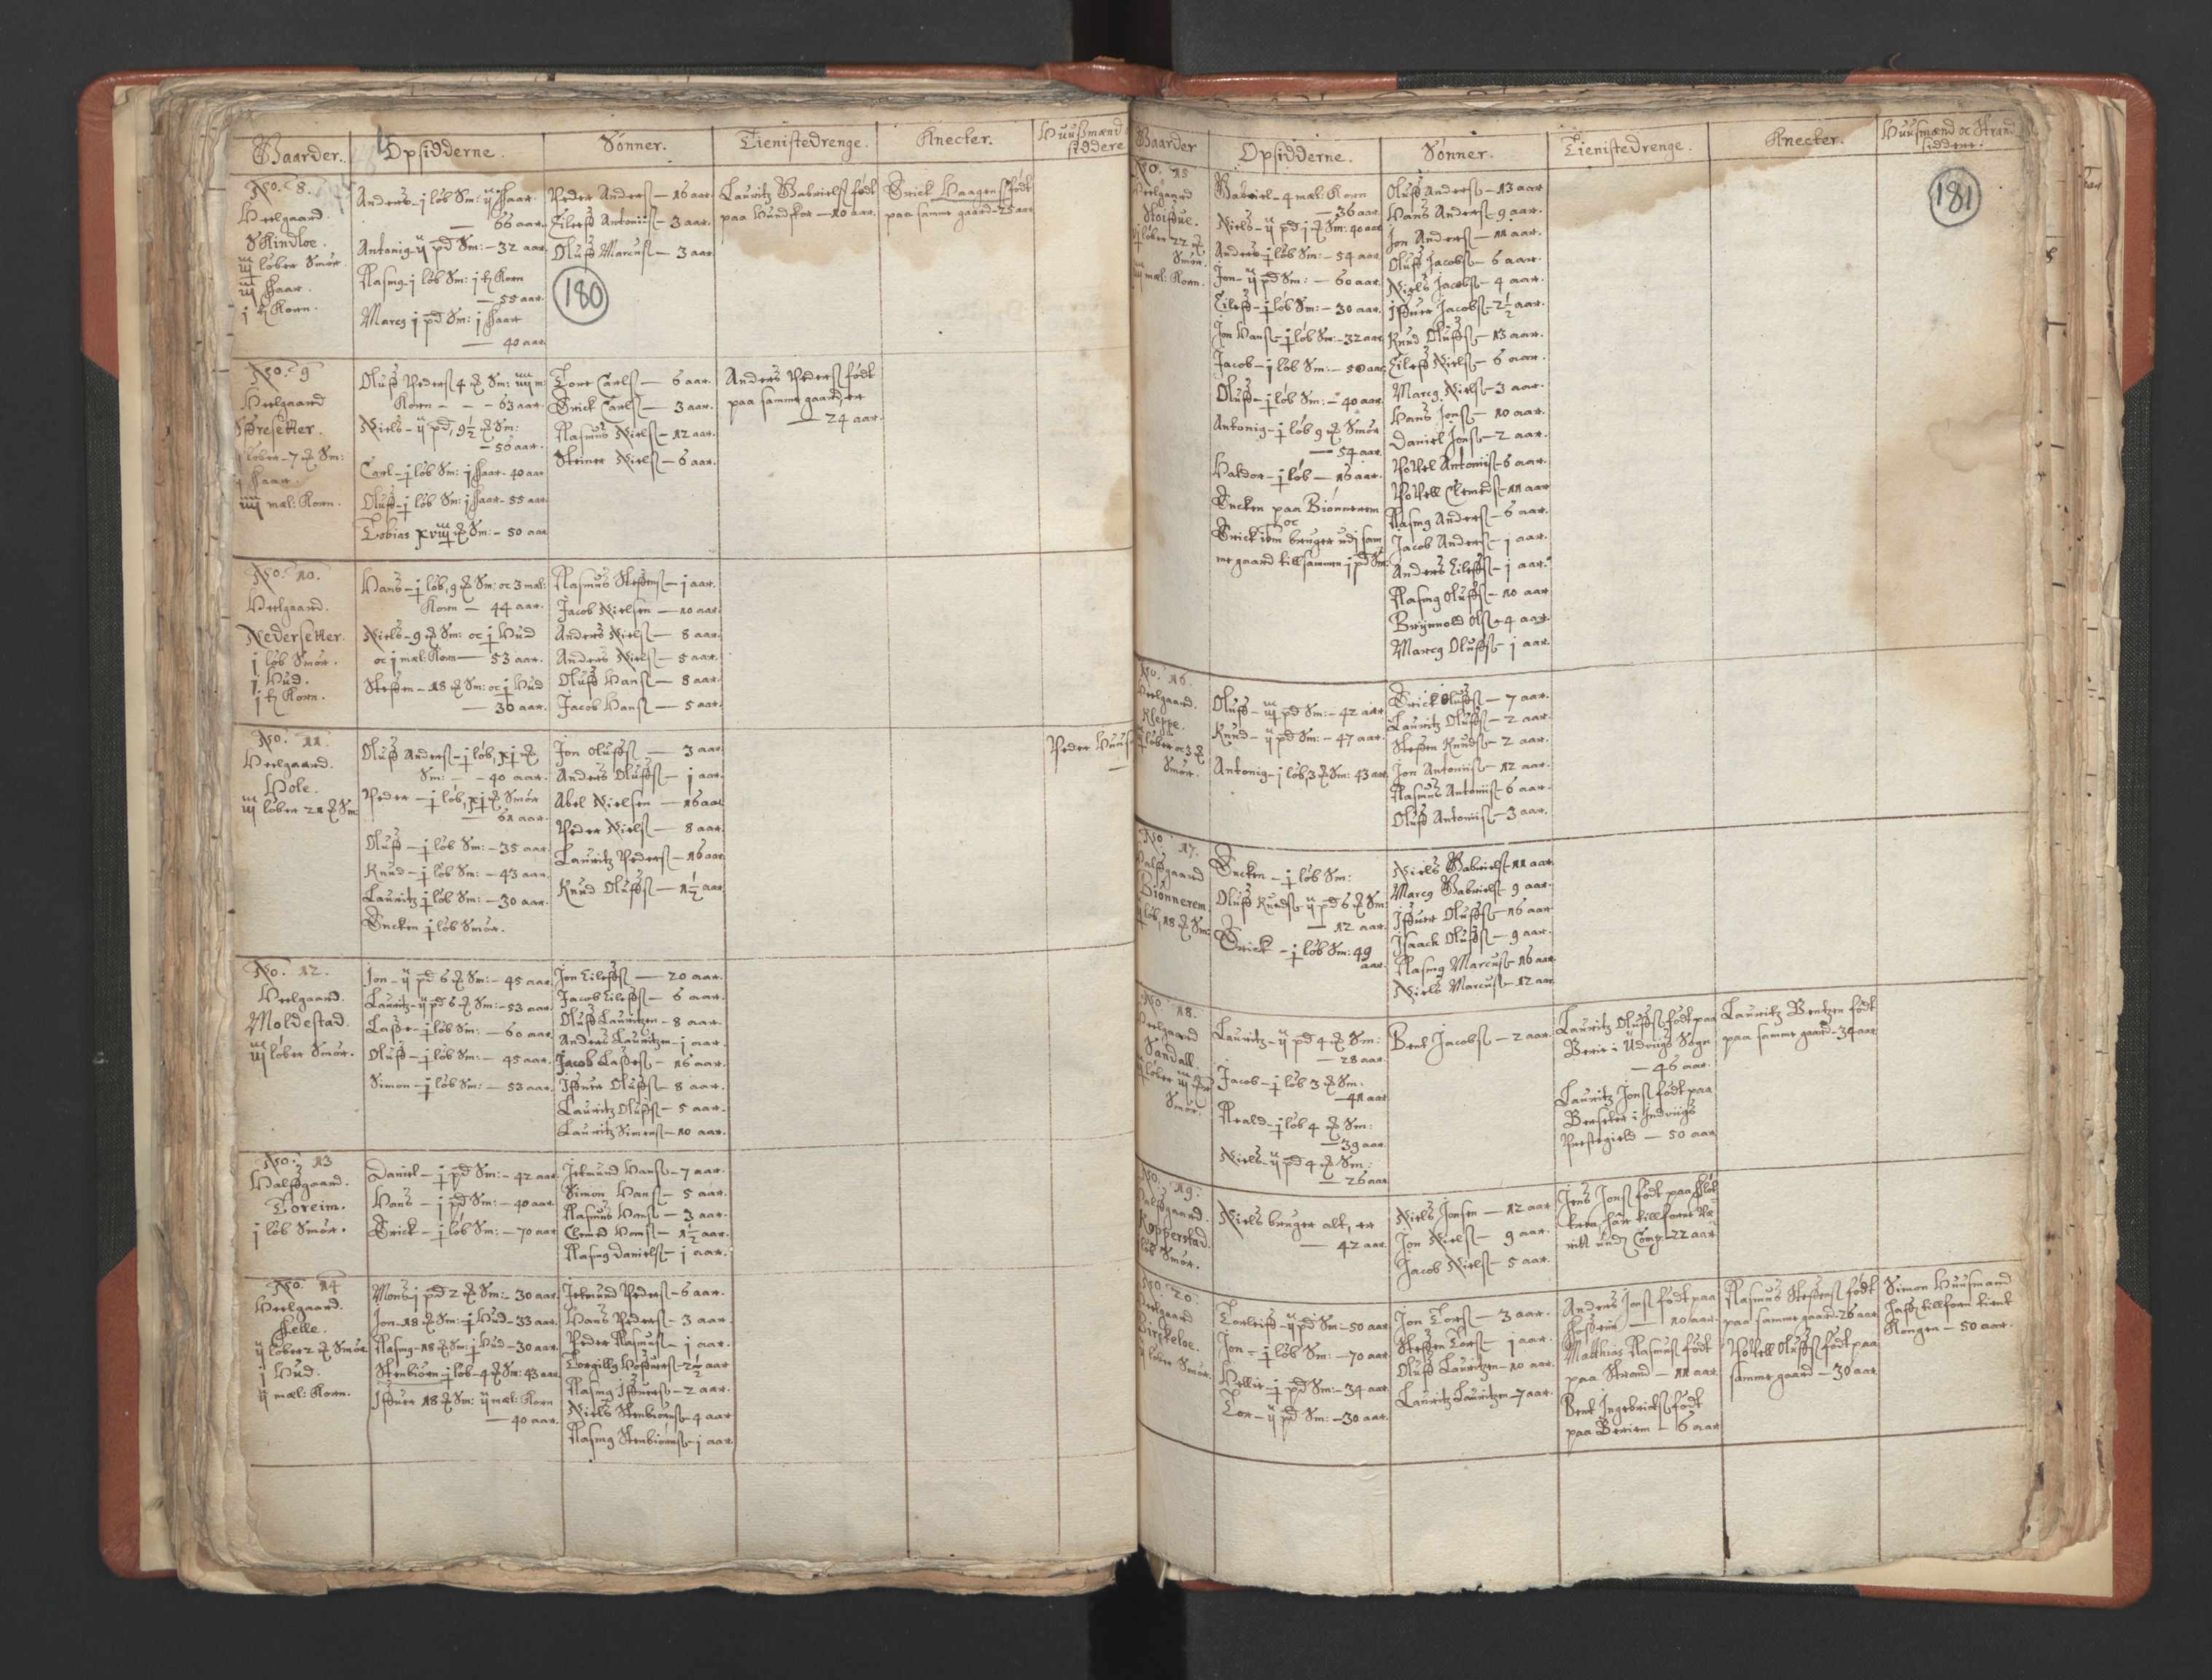 Gaarder. Opsidderne. Sønner. Tienistedrenge. Knecter. Huusmænd siddere
No. 8.
Heelgaard.
Skindloe.
iij løber Smør.
iij Faar.
j t Korn.
Anders - j løb Sm: ij Faar
— 66 aar.
Antonig - ij pd Sm: - 32 aar
Rasmg - j løb Sm: j t Korn
— 55 aar.
Marcg j pd Sm: j Faar
— 40 aar
Peder Anders — 16 aar
Eileff Antonii — 3 aar.
Oluff Marcus — 3 aar
180
Lauritz Gabriels født
paa Hundskor — 10 aar.
Erick Haagens født
paa samme gaard - 25 aar
No. 9
Heelgaard
løber - 7 Sm:
j Faar
iiij mæl: Korn.
Oluff Peders 4 Sm: iiij m:
Korn - - - 63 aar.
Niels - ij pd, 9½ Sm:
— 56 aar.
Carl - j løb Sm: j Faar - 40 aar
Oluff - j løb Sm: j Faar - 55 aar
Tobias xviij Sm: - 50 aar
Tore Carls — 6 aar.
Erick Carls — 3 aar.
Rasmus Niels — 12 aar.
Steiner Niels — 6 aar.
Anders Peders født
paa samme gaard, er
— 24 aar.
No. 10.
Heelgaard.
Nedersetter.
j løb Smør.
j Hud.
j t Korn.
Hans - j løb, 9 Sm: oc 3 mæl:
Korn — 44 aar.
Niels - 9 Sm: oc j Hud
oc j mæl: Korn — 53 aar.
Steffen - 18 Sm: oc j Hud
— 30 aar.
Rasmus Steffens — j aar.
Jacob Nielsen — 10 aar.
Anders Niels — 8 aar.
Anders Niels — 5 aar.
Oluff Hans — 8 aar.
Jacob Hans — 5 aar.
No. 11.
Heelgaard.
Hole.
iij løber 21 Sm
Oluff Anders - j løb, xj
Sm: - - 40 aar.
Peder - j løb, xj Smør
— 61 aar.
Oluff - j løb Sm: - 35 aar.
Knud - j løb Sm: - 43 aar.
Lauritz j løb Sm: - 30 aar.
Encken j løb Smør.
Jon Oluffs — 3 aar
Anders Oluffs — j aar.
Abel Nielsen — 16 aar
Peder Niels — 8 aar.
Lauritz Peders — 16 aar
Knud Oluffs — 1½ aar
Peder Huus
No. 12.
Heelgaard.
Moldestad.
iij løber Smør.
Jon - ij pd 6 Sm: - 45 aar.
Lauritz - ij pd 6 Sm: - 53 aar.
Lasse - j løb Sm: — 60 aar
Oluff - j løb Sm: - 45 aar.
Simon - j løb Sm: — 53 aar.
Jon Eileffs — 20 aar.
Jacob Eileffs — 6 aar.
Oluff Lauritzen - 8 aar.
Anders Lauritzen - j aar.
Jacob Lasses — 16 aar.
Iffuer Oluffs — 8 aar.
Lauritz Oluffs — 5 aar.
Lauritz Simens — 10 aar.
No. 13
Halffgaard.
Toreim.
j løb Smør.
Daniel - j pd Sm: - 42 aar
Hans - j pd Sm: - 40 aar.
Erick - j løb Sm: - 70 aar.
Jetmund Hans - 7 aar.
Simon Hans — 5 aar.
Rasmus Hans — 3 aar.
Clemed Hans — 1½ aar.
Rasmg Daniels — j aar.
No. 14
Heelgaard.
Felle.
ij løber 2 Smør
j Hud.
ij mæl: Korn.
Mons - j pd 2 Sm: - 30 aar.
Jon - 18 Sm: - j Hud - 33 aar.
Rasmg - 18 Sm: j Hud - 30 aar.
Stenbiørn - j løb - 4 Sm: 43 aar
Iffuer 18 Sm: ij mæl: Korn
— 40 aar.
Jetmund Peders - 6 aar.
Hans Peders — 3 aar.
Peder Rasmus — j aar.
Torgills Hoffuers - 2½ aar
Rasmg Iffuers - 2 aar.
Niels Stenbiørns - 4 aar
Rasmg Stenbiørns - j aar.
Gaarder Opsidderne. Sønner. Tienistedrenge. Knecter. Huusmænd oc Strand siddere.
181
No. 15
Heelgaard
løber 22
Smør.
iij mæl: Korn.
Gabriel - 4 mæl: Korn
— 36 aar.
Niels - ij pd j Sm: 40 aar
Anders - j løb Sm: - 54 aar
Jon - ij pd Sm: - 60 aar.
Eileff - j løb Sm: - 30 aar.
Jon Hans - j løb Sm: - 32 aar
Jacob - j løb Sm: - 50 aar.
Oluff - j løb Sm: - 40 aar.
Antonig - j løb 9 Smør
— 54 aar.
Haldor - j løb — 16 aar.
Encken paa Biønnerem
oc
Erick som bruger udj sam
me gaard tillsammen j pd Sm:
Oluff Anders - 13 aar
Hans Anders - 9 aar.
Jon Anders - 11 aar.
Oluff Jacobs - 6 aar.
Niels Jacobs - 4 aar.
Iffuer Jacobs - 2½ aar.
Knud Oluffs - 13 aar.
Eileff Niels - 6 aar.
Marcg Niels - 3 aar.
Hans Jons - 10 aar.
Daniel Jons - 2 aar.
Pofvel Antonii - 6 aar.
Pofvell Clemeds - 11 aar
Rasmg Anders - 6 aar.
Jacob Anders - j aar.
Anders Eileffs - j aar.
Rasmg Oluffs - 10 aar
Brynnold Ols - 4 aar.
Marcg Oluffs - j aar.
No. 16.
Heelgaard.
Kleppe.
løber oc 3
Smør.
Oluff - iij pd Sm: - 42 aar.
Knud - ij pd Sm: - 47 aar.
Antonig - j løb, 3 Sm: 43 aar.
Erick Oluffs — 7 aar.
Lauritz Oluffs — 2 aar.
Steffen Knuds - 2 aar.
Jon Antonii - 12 aar.
Rasmus Antonii - 6 aar.
Oluff Antonii - 3 aar.
No. 17.
Halffgaard
Biønnerem
løb, 18 Sm:
Encken - j løb Sm:
Oluff Knuds ij pd 6 Sm
— 12 aar.
Erick - j løb Sm: 49
aar.
Niels Gabriels - 11 aar.
Marcg Gabriels - 9 aar.
Iffuer Oluffs - 16 aar
Isaach Oluffs - 9 aar.
Rasmg Marcus - 16 aar
Niels Marcus - 12 aar
No. 18.
Heelgaard
Sandall.
løber iij
Smør.
Lauritz - ij pd 4 Sm:
— 28 aar.
Jacob - j løb 3 Sm.
— 41 aar
Reald - j løb 4 Sm:
— 39 aar.
Niels - ij pd 4 Sm:
— 26 aar.
Bent Jacobs — 2 aar.
Lauritz Oluffs født paa
Berie i Udviigs Sogn
— 46 aar.
Lauritz Jons født paa
Berseter i Indviigs
Prestegield — 50 aar
Lauritz Bentzen født
paa samme gaard - 34 aar
No. 19.
Halffgaard.
Kopperstad.
løb Smør.
Niels bruger alt, er
— 42 aar.
Niels Jonsen — 12 aar
Jon Niels — 9 aar.
Jacob Niels — 5 aar.
Jens Jons født paa
haffr tillforne
rit under Comp - 22 aar
No. 20.
Heelgaard
Birckeloe.
løber Smør.
Torleiff - ij pd Sm: - 50 aar.
Jon - j løb Sm: - 70 aar.
Hellie - j pd Sm: - 34 aar.
Tor - ij pd Sm: - 30 aar.
Jon Tors — 3 aar.
Steffen Tors - j aar.
Oluff Lauritzen - 10 aar.
Lauritz Lauritzen - 7 aar.
Anders Jons født paa
— 10 aar.
Matthias Rasmus født
paa Strand — 11 aar.
Bent Ingebricts født
paa Beriem - 6 aar
Rasmus Steffens født
paa samme gaard - 26 aar
Pofvell Oluffs født paa
samme gaard — 30 aar.
Simon Huusmand
haffr tillforn tient
Kongen - 50 aar.